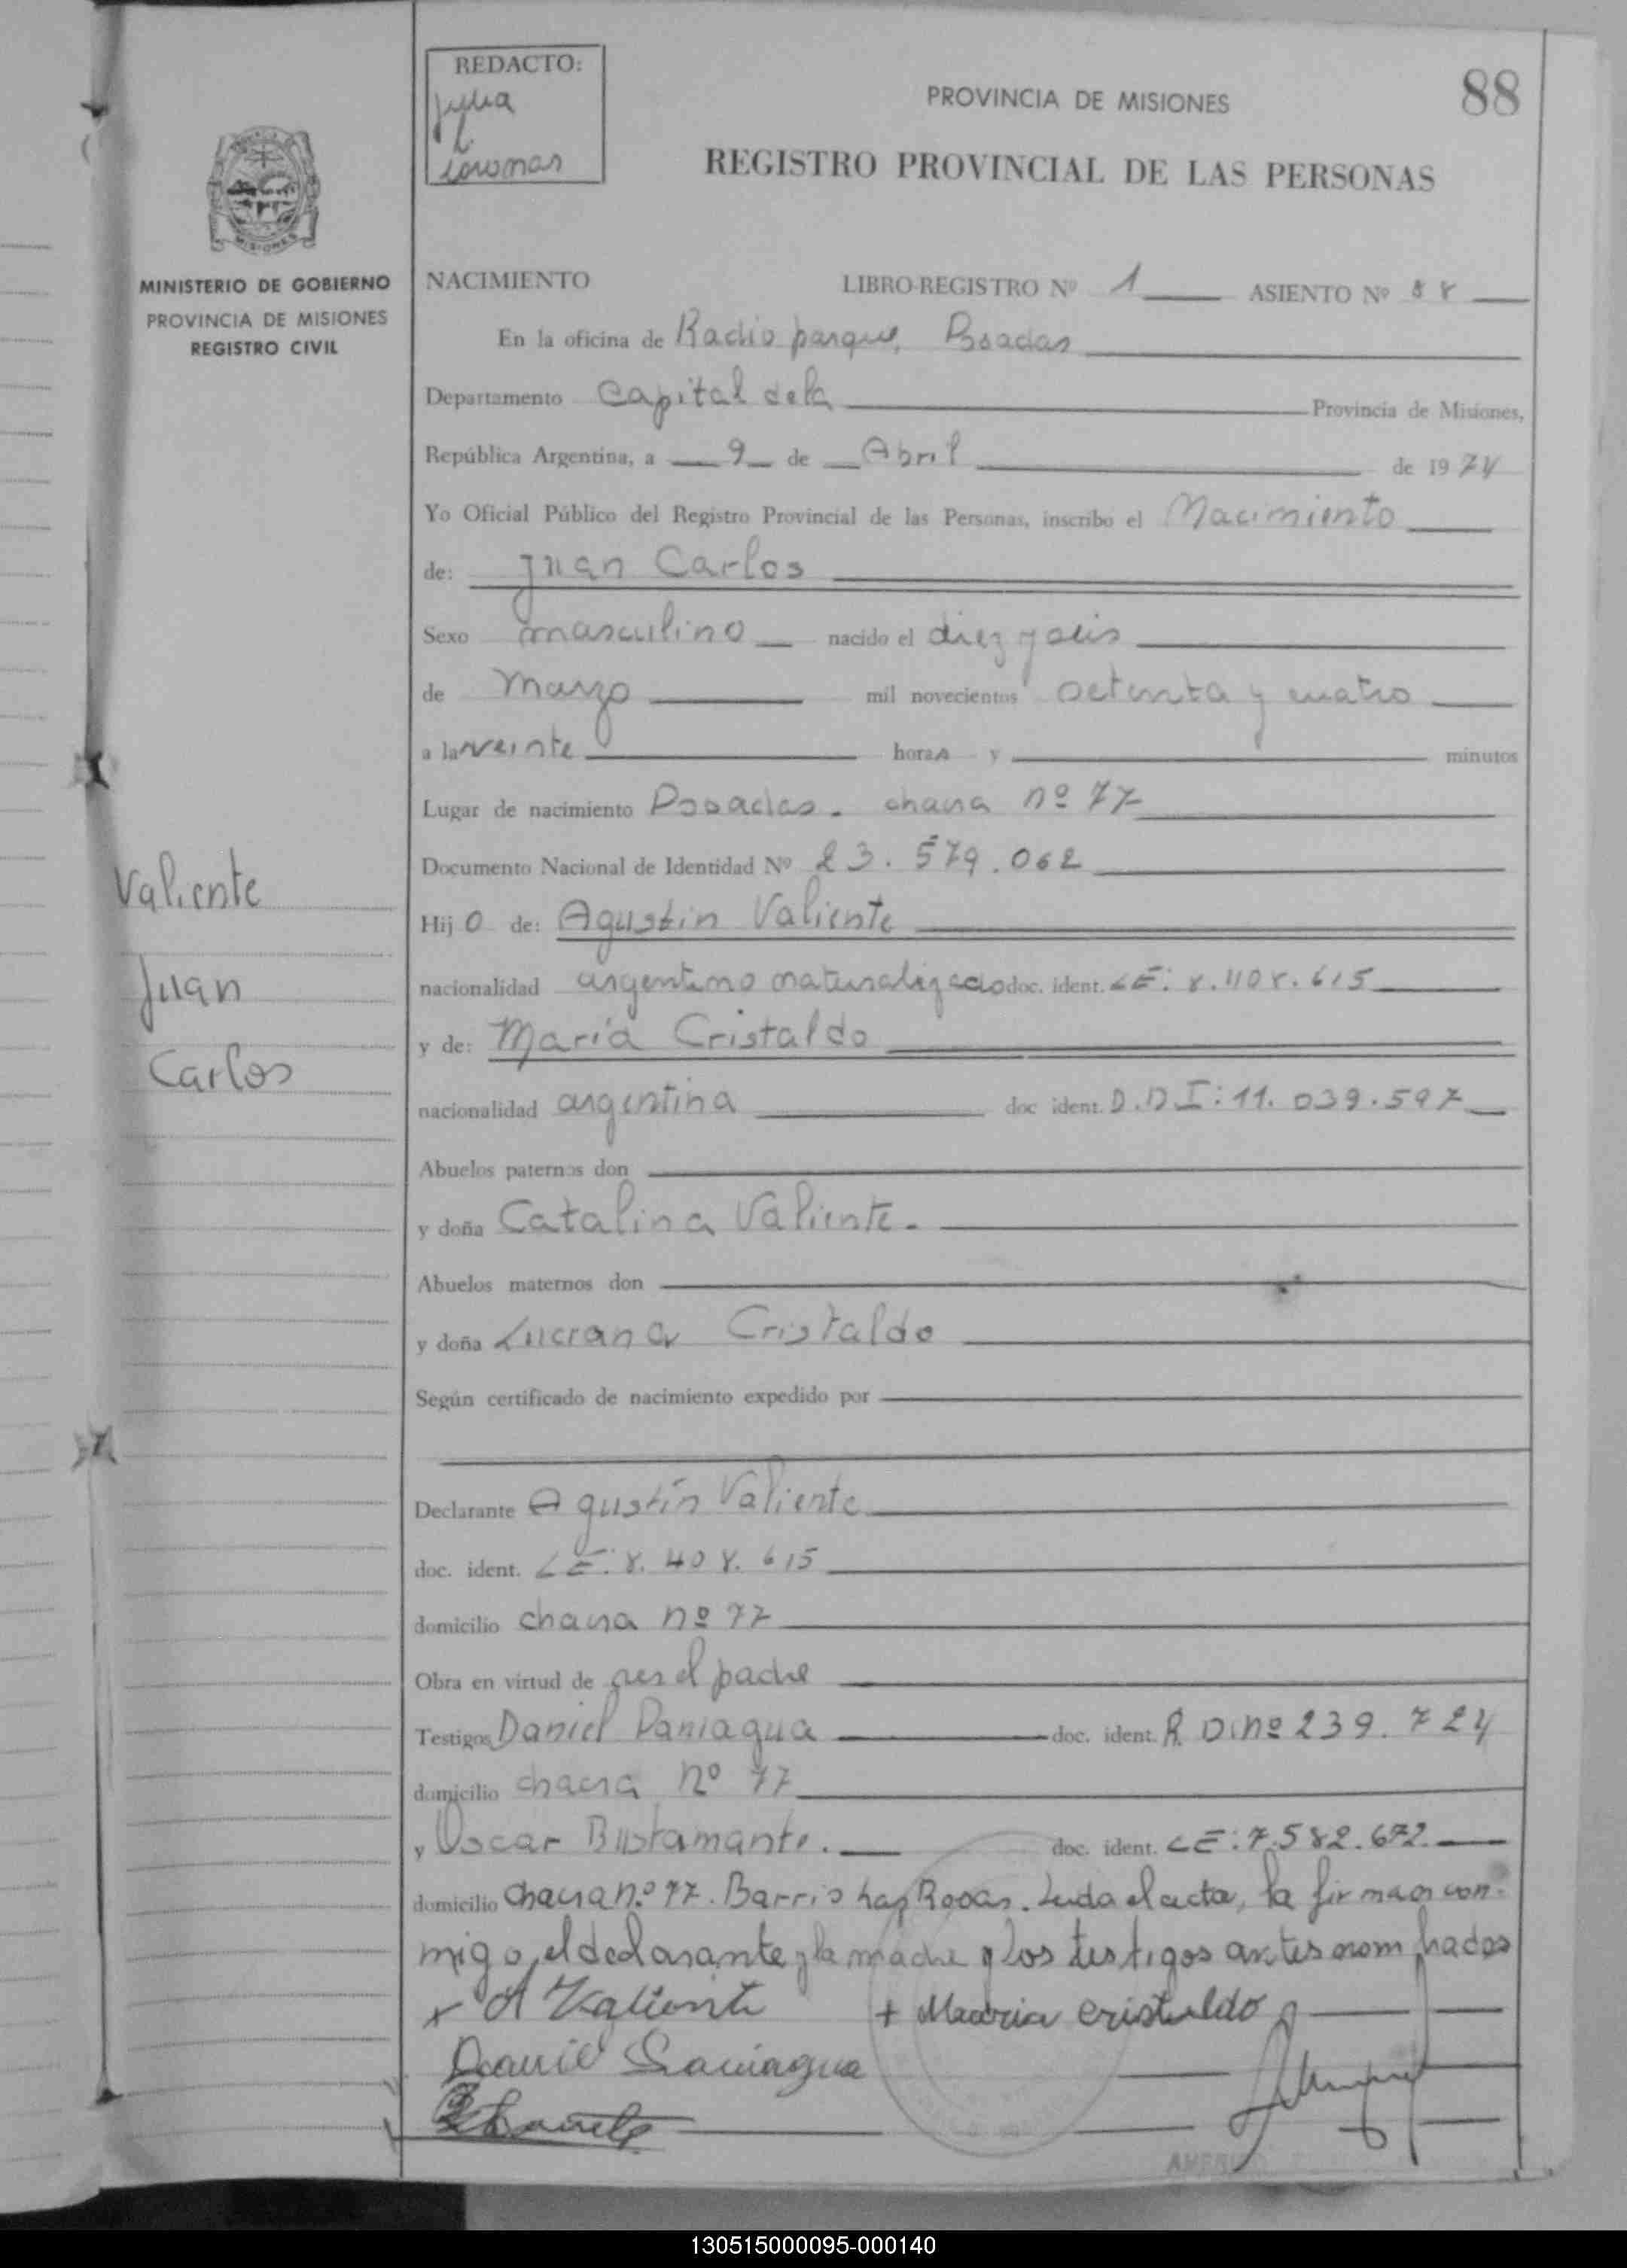 REDACTO:
Julia
L.
PROVINCIA DE MISIONES
88
REGISTRO PROVINCIAL DE LAS PERSONAS
MISIONES
MINISTERIO DE GOBIERNO
PROVINCIA DE MISIONES
REGISTRO CIVIL
NACIMIENTO LIBRO-REGISTRO Nº 1 ASIENTO Nº 88
En la oficina de Radio parque, Posadas
Departamento Capital de la Provincia de Misiones,
República Argentina, a 9 de Abril de 1974
Yo Oficial Público del Registro Provincial de las Personas, inscribo el Nacimiento
de: Juan Carlos
Sexo masculino nacido el diez y seis
de Marzo mil novecientos setenta y cuatro
a las veinte horas y minutos
Lugar de nacimiento Posadas. chacra nº 77
Documento Nacional de Identidad Nº 23.579.062
Valiente
Juan
Carlos
Hijo de: Agustin Valiente
nacionalidad argentino naturalizado doc. ident. LE: 8.408.615
y de: María Cristaldo
nacionalidad argentina doc ident. D.N I: 11.039.597
Abuelos paternos don
y doña Catalina Valiente.
Abuelos maternos don
y doña Luciana Cristaldo
Según certificado de nacimiento expedido por
Declarante Agustín Valiente
doc. ident. LE: 8.408.615
domicilio chacra nº 77
Obra en virtud de ser el padre
Testigos Daniel Paniagua doc. ident. R. D. nº 239.724
domicilio chacra nº 77
y Oscar Bustamante. doc. ident. LE: 7.582.672
domicilio chacra nº 77. Barrio Las Rosas. Leida el acta, la firman con-
migo, el declarante y la madre y los testigos antes nombrados
x A Valiente + Maaria cristaldo
Daniel Paniagua
130515000095-000140